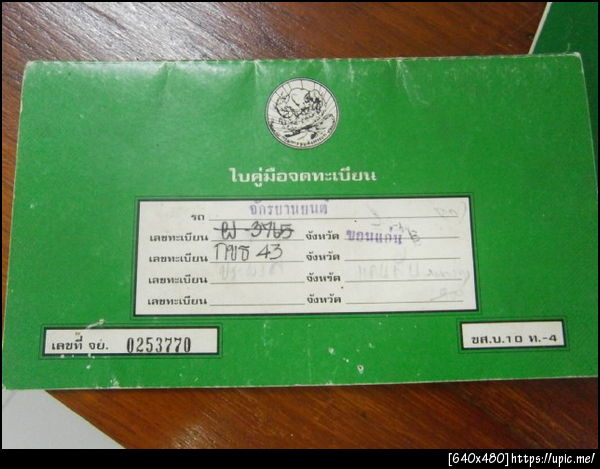 ใบคู่มือจดทะเบียน
รถ จักรยานยนต์
เลขทะเบียน -3965 จังหวัด ขอนแก่น
เลขทะเบียน กขธ 43 จังหวัด
เลขทะเบียน จังหวัด
เลขทะเบียน จังหวัด
เลขที่ จย. 0253770
ขส.บ.10 ท.-4
[640x480]https://upic.me/